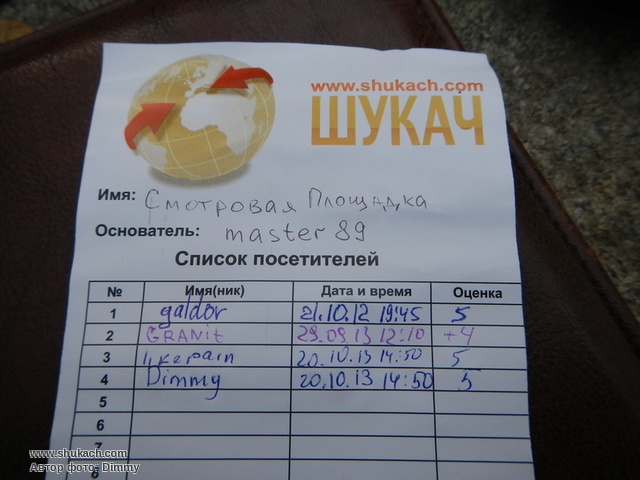 www.shukach.com
ШУКАЧ
Имя: Смотровая Площадка
Основатель: master 89
Список посетителей
№ Имя(ник) Дата и время Оценка
1 galdor 21.10.12 19:45 5
2 GRANit 29.09.13 12:10 +4
3 20.10.13 14:50 5
4 Dimmy 20.10.13 14:50 5
5
6
7
8
www.shukach.com
Автор фото: Dimmy